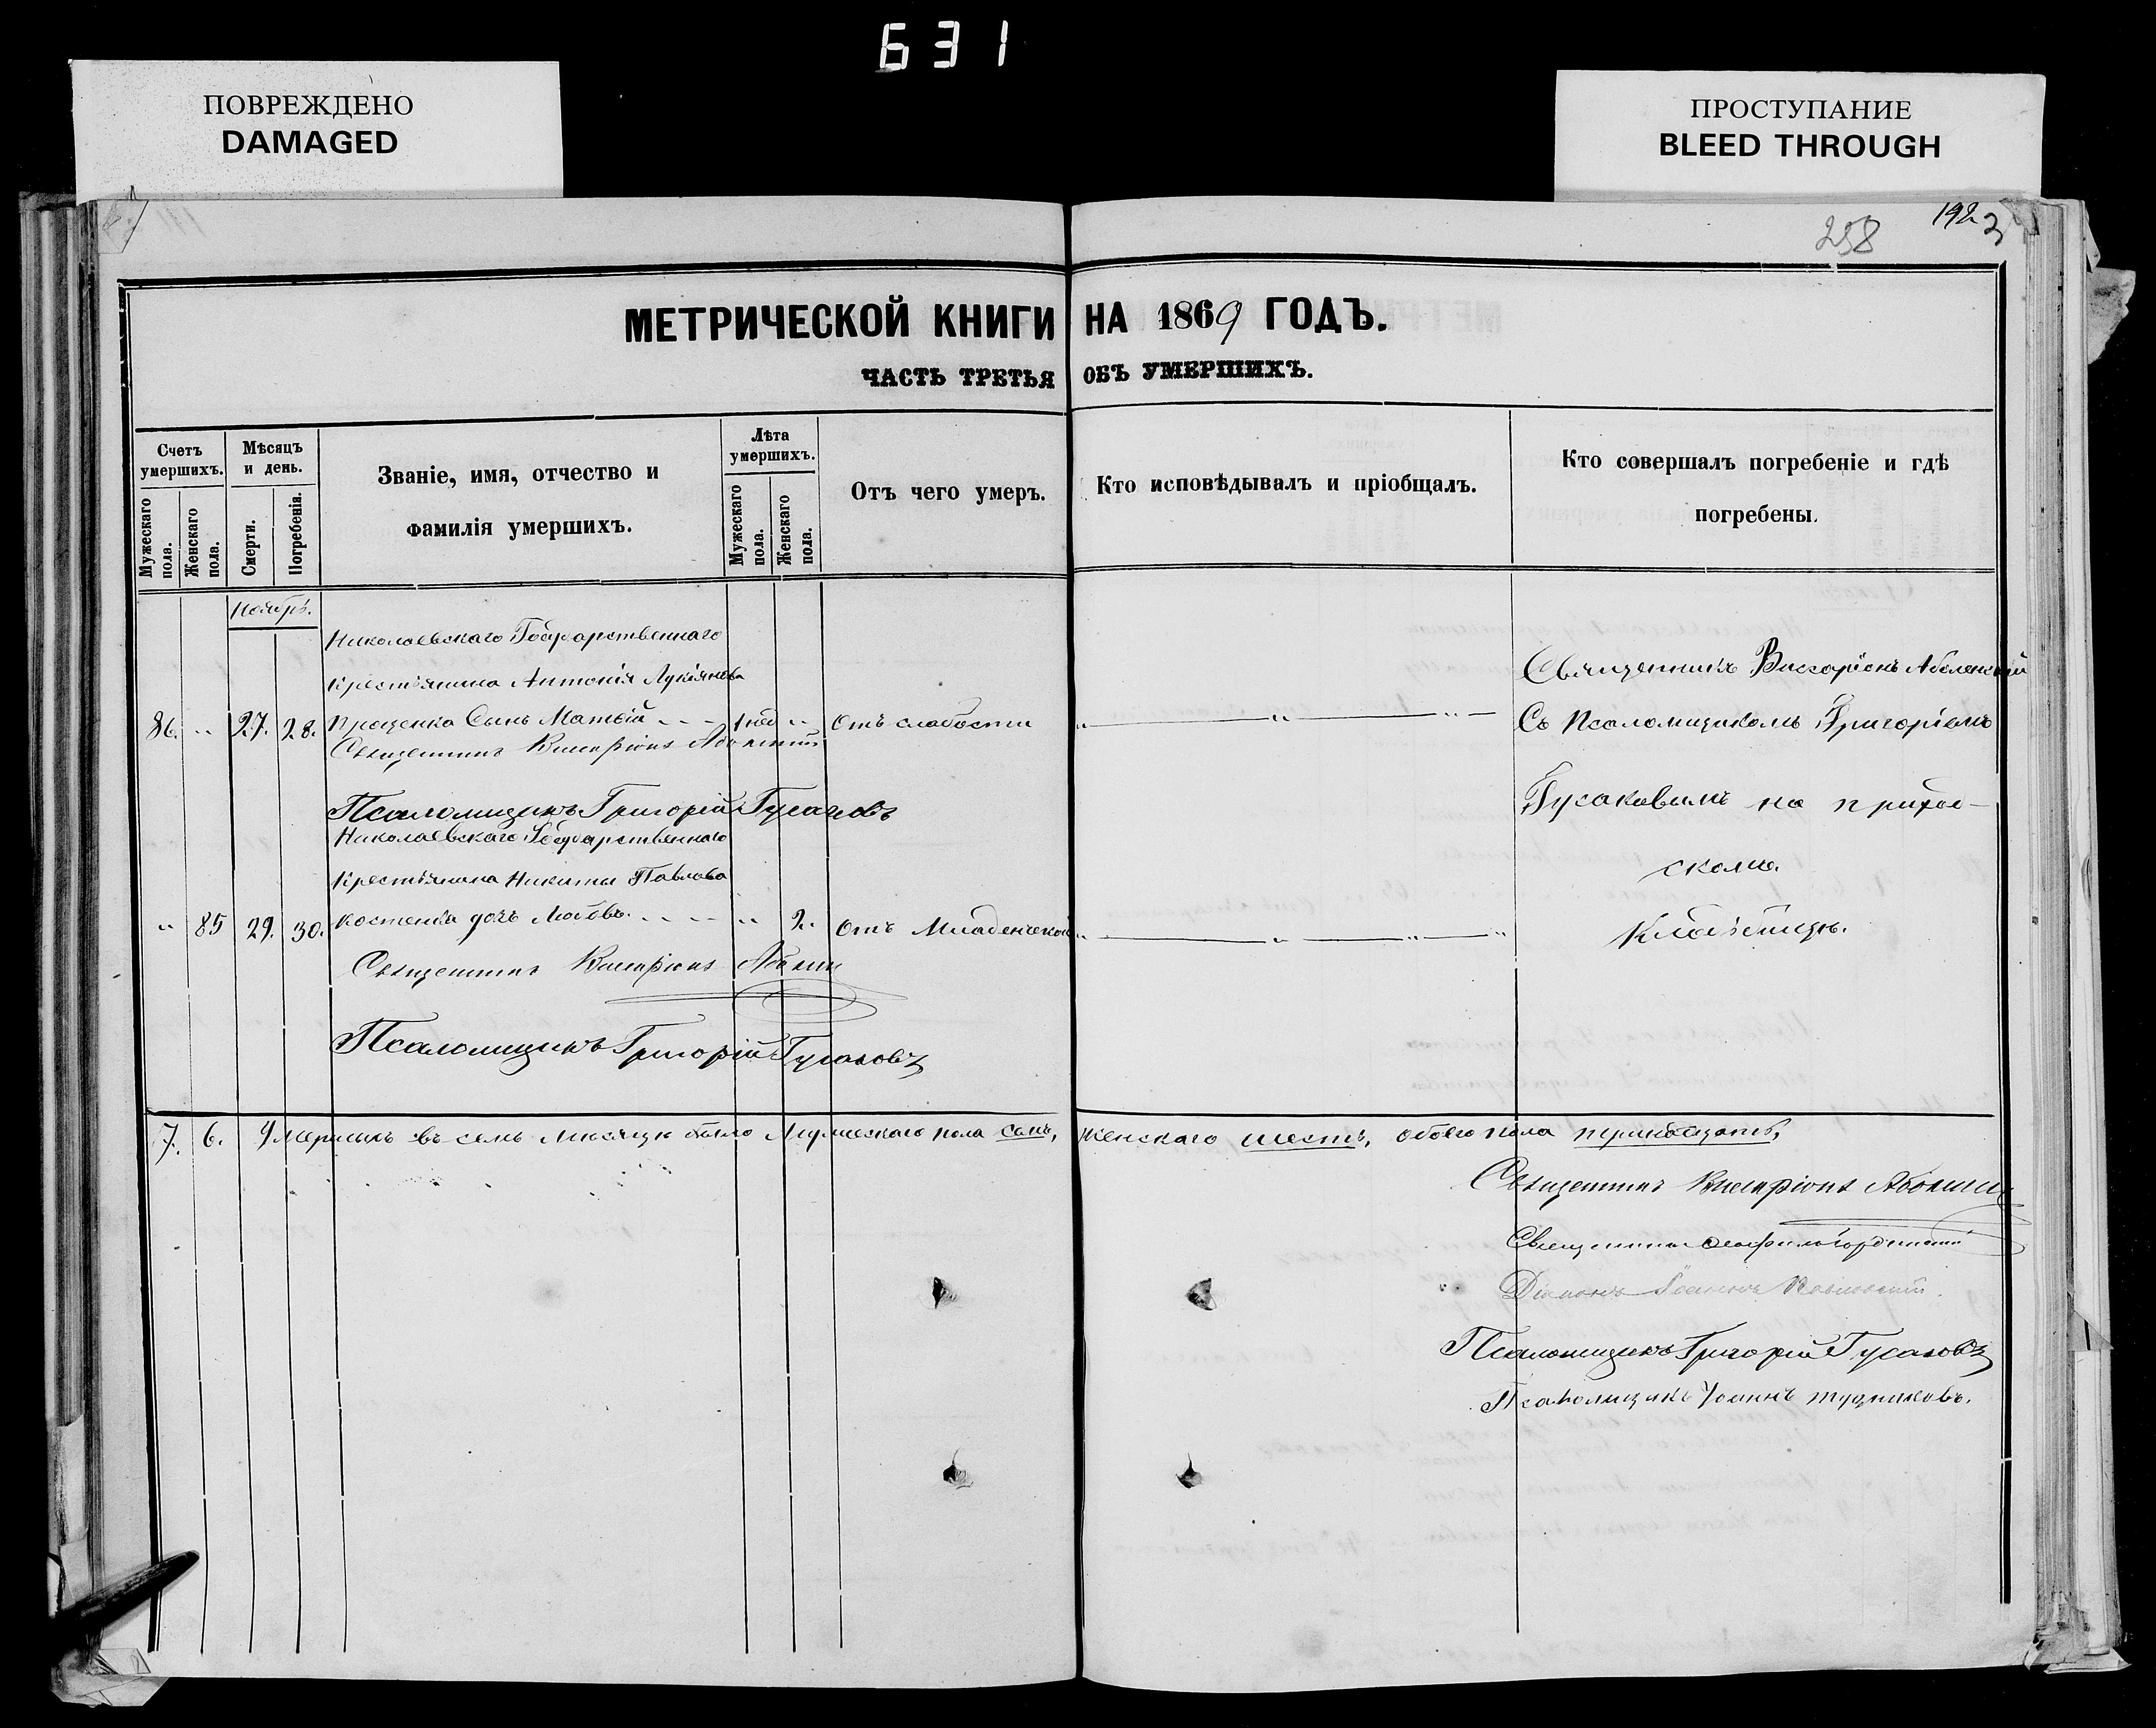 631
ПОВРЕЖДЕНО
DAMAGED
ПРОСТУПАНИЕ
BLEED THROUGH
258
192
МЕТРИЧЕСКОЙ КНИГИ НА 1869 ГОДЪ.
ЧАСТЬ ТРЕТЬЯ ОБЪ УМЕРШИХЪ.
Счетъ умершихъ.
Мужескаго пола.
Женскаго пола.
Мѣсяцъ и день.
Смерти.
Погребенія.
Званіе, имя, отчество и
фамилія умершихъ.
Лѣта умершихъ.
Мужескаго пола.
Женскаго пола.
Отъ чего умеръ.
Кто исповѣдывалъ и пріобщалъ.
Кто совершалъ погребеніе и гдѣ
погребены.
Ноябрь.
Николаевскаго Государственнаго
Крестьянина Антонія Лукіянова
86. " 27. 28. Проценка Сынъ Матѳій 1 нед " Отъ слабости
Священникъ Виссаріонъ
Псаломщикъ Григорій Гусаковъ
Николаевскаго Государственнаго
Крестьянина Никиты Павлова
" 85 29. 30. Костенка дочь Любовь " 2. Отъ Младенческой
Священникъ Виссаріонъ
Псаломщикъ Григорій Гусаковъ
Священникъ Виссаріонъ
Съ Псаломщикомъ Григоріемъ
Гусаковымъ на приход-
скомъ
Кладбищѣ.
7. 6. Умершихъ въ семъ Мѣсяцѣ было Мужескаго пола семь, женскаго шесть, обоего пола тринадцать,
Священникъ Виссаріонъ
Священникъ
Діаконъ Іоаннъ
Псаломщикъ Григорій Гусаковъ
Псаломщикъ Іоаннъ